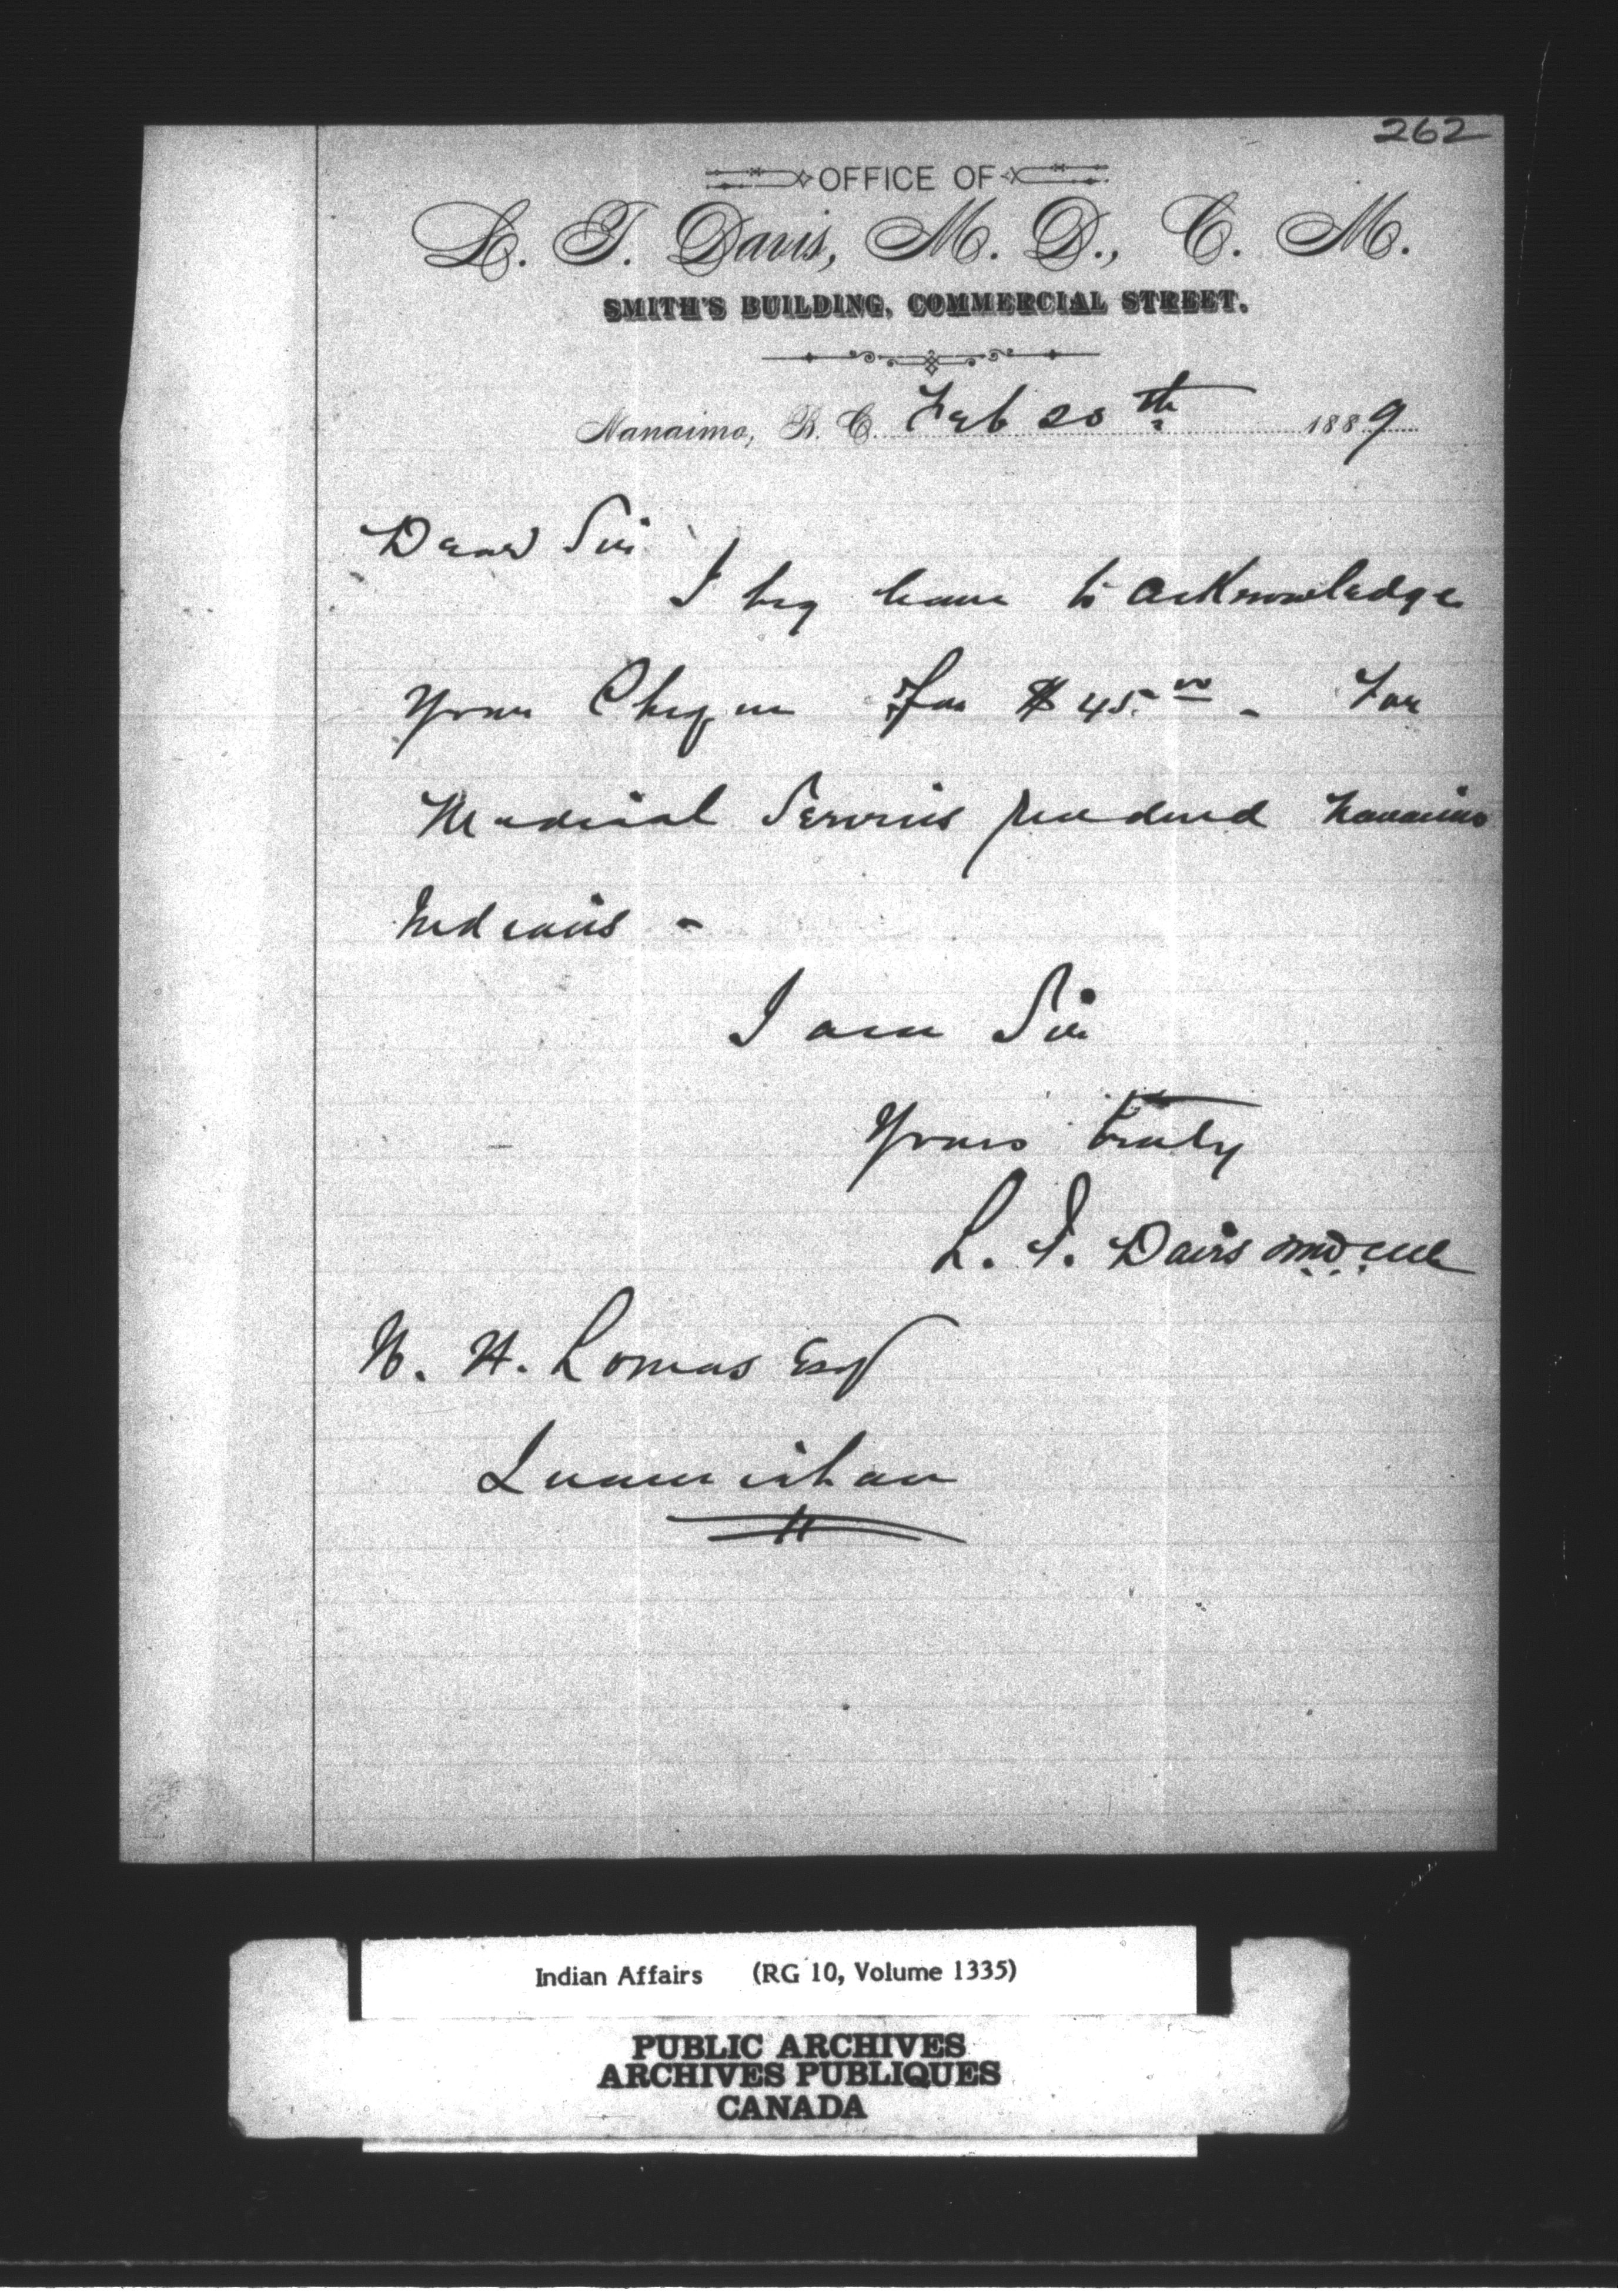 262
OFFICE OF
L. T. Davis, M. D., C. M.
SMITH'S BUILDING, COMMERCIAL STREET.
Nanaimo, B. C. Feb 20th 1889
Dear Sir
I beg leave to acknowledge
your Cheque for $45.00 - For
Medical Services rendered Nanaimo
Indians -
I am Sir
Yours truly
L. T. Davis MD CM
W. H. Lomas Esq
Quamichan
Indian Affairs (RG 10, Volume 1335)
PUBLIC ARCHIVES
ARCHIVES PUBLIQUES
CANADA